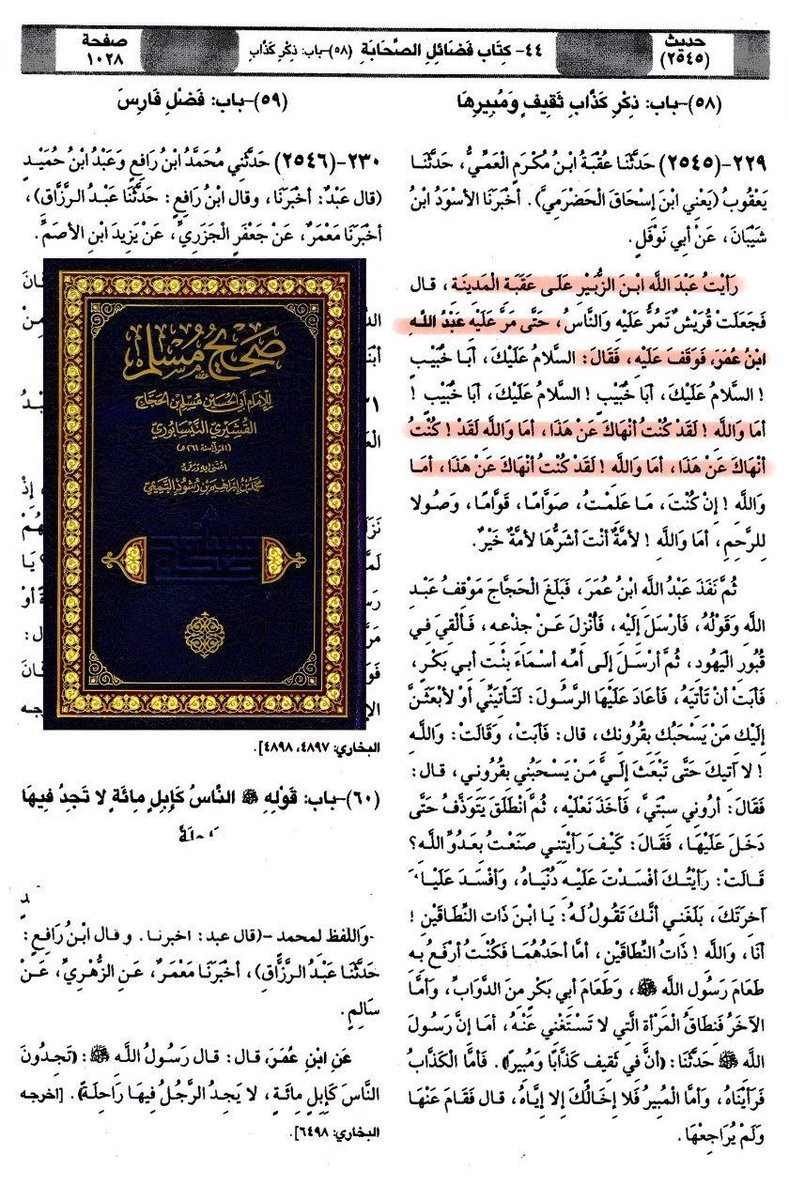 حديث (٢٥٤٥)
٤٤- كِتَاب فَضَائِلِ الصَّحَابَةِ (٥٨)-باب: ذِكْرِ كَذَّابِ
صفحة ١٠٢٨
(٥٨)-باب: ذِكْرِ كَذَّابِ ثَقِيفٍ وَمُبِيرِهَا
٢٢٩-(٢٥٤٥) حَدَّثَنَا عُقْبَةُ ابْنُ مُكْرَمٍ الْعَمِّيُّ، حَدَّثَنَا
يَعْقُوبُ (يَعْنِي ابْنَ إِسْحَاقَ الْحَضْرَمِيَّ). أخْبَرَنَا الأسْوَدُ ابْنُ
شَيْبَانَ، عَنْ أبِي نَوْفَلٍ.
رَأيْتُ عَبْدَ اللَّه ابْنَ الزُّبَيْرِ عَلَى عَقَبَةِ الْمَدِينَةِ، قال
فَجَعَلَتْ قُرَيْشٌ تَمُرُّ عَلَيْهِ وَالنَّاسُ، حَتَّى مَرَّ عَلَيْهِ عَبْدُ اللَّهِ
ابْنُ عُمَرَ، فَوَقَفَ عَلَيْهِ، فَقَالَ: السَّلامُ عَلَيْكَ، أبَا خُبَيْبٍ
! السَّلامُ عَلَيْكَ، أبَا خُبَيْبٍ! السَّلامُ عَلَيْكَ، أبَا خُبَيْبٍ !
أمَا وَاللَّه ! لَقَدْ كُنْتُ أنْهَاكَ عَنْ هَذَا، أمَا وَاللَّه لَقَدْ ! كُنْتُ
أنْهَاكَ عَنْ هَذَا، أمَا وَاللَّه ! لَقَدْ كُنْتُ أنْهَاكَ عَنْ هَذَا، أمَا
وَاللَّه ! إنْ كُنْتَ، مَا عَلِمْتُ، صَوَّامًا، قَوَّامًا، وَصُولا
لِلرَّحِمِ، أمَا وَاللَّه ! لأمَّةٌ أنْتَ أشَرُّهَا لأمَّةٌ خَيْرٌ.
ثُمَّ نَفَذَ عَبْدُ اللَّه ابْنُ عُمَرَ، فَبَلَغَ الْحَجَّاجَ مَوْقِفُ عَبْدِ
اللَّه وَقَوْلُهُ، فَأرْسَلَ إِلَيْهِ، فَأُنْزِلَ عَنْ جِذْعِهِ، فَألْقِيَ فِي
قُبُورِ الْيَهُودِ، ثُمَّ أرْسَلَ إِلَى أمِّهِ أسْمَاءَ بِنْتِ أبِي بَكْرٍ،
فَأبَتْ أنْ تَأتِيَهُ، فَأعَادَ عَلَيْهَا الرَّسُولَ: لَتَأتِيَنِّي أوْ لأبْعَثَنَّ
إِلَيْكِ مَنْ يَسْحَبُكِ بِقُرُونِكِ، قال: فَأبَتْ، وَقَالَتْ: وَاللَّه
! لا آتِيكَ حَتَّى تَبْعَثَ إِلَيَّ مَنْ يَسْحَبُنِي بِقُرُونِي، قال:
فَقَالَ: أرُونِي سِبْتَيَّ، فَأخَذَ نَعْلَيْهِ، ثُمَّ انْطَلَقَ يَتَوَذَّفُ حَتَّى
دَخَلَ عَلَيْهَا، فَقَالَ: كَيْفَ رَأيْتِنِي صَنَعْتُ بِعَدُوِّ اللَّه؟
قَالَتْ: رَأيْتُكَ أفْسَدْتَ عَلَيْهِ دُنْيَاهُ، وَأفْسَدَ عَلَيْكَ
آخِرَتَكَ، بَلَغَنِي أنَّكَ تَقُولُ لَهُ: يَا ابْنَ ذَاتِ النِّطَاقَيْنِ !
أنَا، وَاللَّه ! ذَاتُ النِّطَاقَيْنِ، أمَّا أحَدُهُمَا فَكُنْتُ أرْفَعُ بِهِ
طَعَامَ رَسُولِ اللَّه ﷺ، وَطَعَامَ أبِي بَكْرٍ مِنَ الدَّوَابِّ، وَأمَّا
الآخَرُ فَنِطَاقُ الْمَرْأةِ الَّتِي لا تَسْتَغْنِي عَنْهُ، أمَا إِنَّ رَسُولَ
اللَّه ﷺ حَدَّثَنَا: (أنَّ فِي ثَقِيفٍ كَذَّابًا وَمُبِيرًا). فَأمَّا الْكَذَّابُ
فَرَأيْنَاهُ، وَأمَّا الْمُبِيرُ فَلا إِخَالُكَ إِلا إِيَّاهُ، قال فَقَامَ عَنْهَا
وَلَمْ يُرَاجِعْهَا.
(٥٩)-باب: فَضْلِ فَارِسَ
٢٣٠-(٢٥٤٦) حَدَّثَنِي مُحَمَّدُ ابْنُ رَافِعٍ وَعَبْدُ ابْنُ حُمَيْدٍ
(قال عَبْدٌ: أخْبَرَنَا، وقال ابْنُ رَافِعٍ: حَدَّثَنَا عَبْدُ الرَّزَّاقِ)،
أخْبَرَنَا مَعْمَرٌ، عَنْ جَعْفَرٍ الْجَزَرِيِّ، عَنْ يَزِيدَ ابْنِ الأصَمِّ.
صَحِيحُ مُسْلِم
للإمام أبي الحسين مسلم بن الحجاج
القشيري النيسابوري
(المتوفى سنة ٢٦١هـ)
اعتنى به ورقمه
محمد بن إبراهيم بن رشود التميمي
البخاري: ٤٨٩٧، ٤٨٩٨].
(٦٠)-باب: قَوْلِهِ ﷺ النَّاسُ كَإِبِلٍ مِائَةٍ لا تَجِدُ فِيهَا
وَاللفظ لمحمد -(قال عبد: اخبرنا. وقال ابْنُ رَافِعٍ:
حَدَّثَنَا عَبْدُ الرَّزَّاقِ)، أخْبَرَنَا مَعْمَرٌ، عَنِ الزُّهْرِيِّ، عَنْ
سَالِمٍ.
عَنِ ابْنِ عُمَرَ، قال: قال رَسُولُ اللَّه ﷺ: (تَجِدُونَ
النَّاسَ كَإِبِلٍ مِائَةٍ، لا يَجِدُ الرَّجُلُ فِيهَا رَاحِلَةً). [اخرجه
البخاري: ٦٤٩٨].